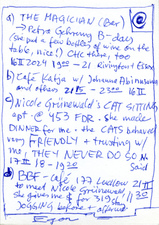 a) THE MAGICIAN (Bar)
→ Petra Gehring B-day
(she put a few bottles of wine on the
table, nice!) OHC there, too
16 II 2024 1900 - 21 Rivington/Essex
b) Café Katja w/ Johanna
and others 2115 - 2300 16 II
c) Nicole Grünewald's CAT SITTING
apt. @ 453 FDR. She made
DINNER for me. the CATS behaved
very FRIENDLY + trusting w/
me, THEY NEVER DO SO N.
said
17 II 18 - 1930
d) BBF - Café 177 Ludlow 21
to meet Nicole Grünewald
she gave me $ for 319
JOGGING before + afterward